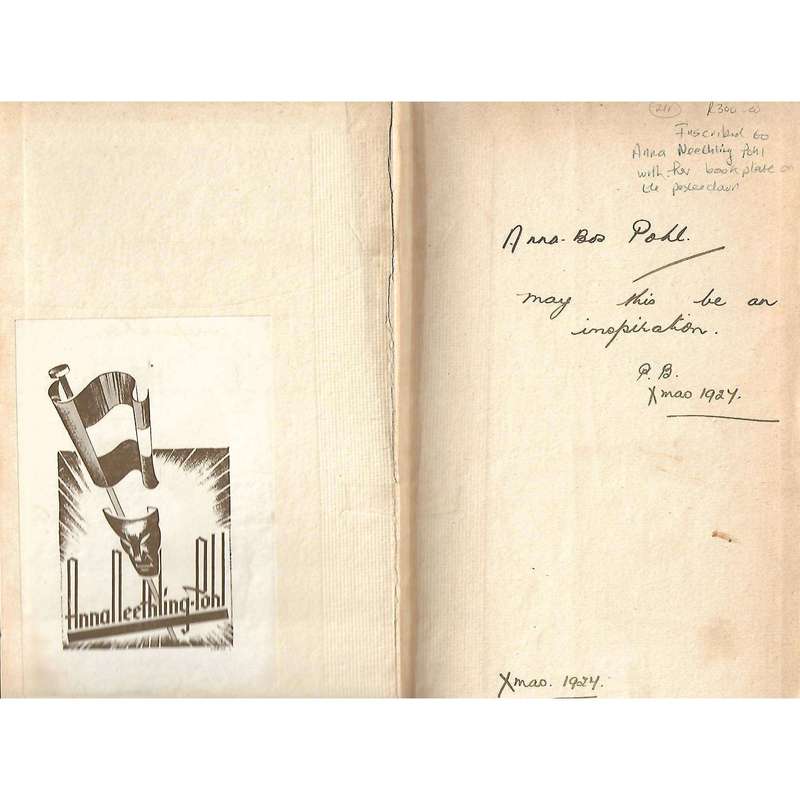 Anna Neethling-Pohl
(211) R300.00
Inscribed to
Anna Neethling Pohl
with her bookplate on
the pastedown
Anna-Bos Pohl.
may this be an
inspiration.
P. B.
Xmas 1927.
Xmas. 1927.